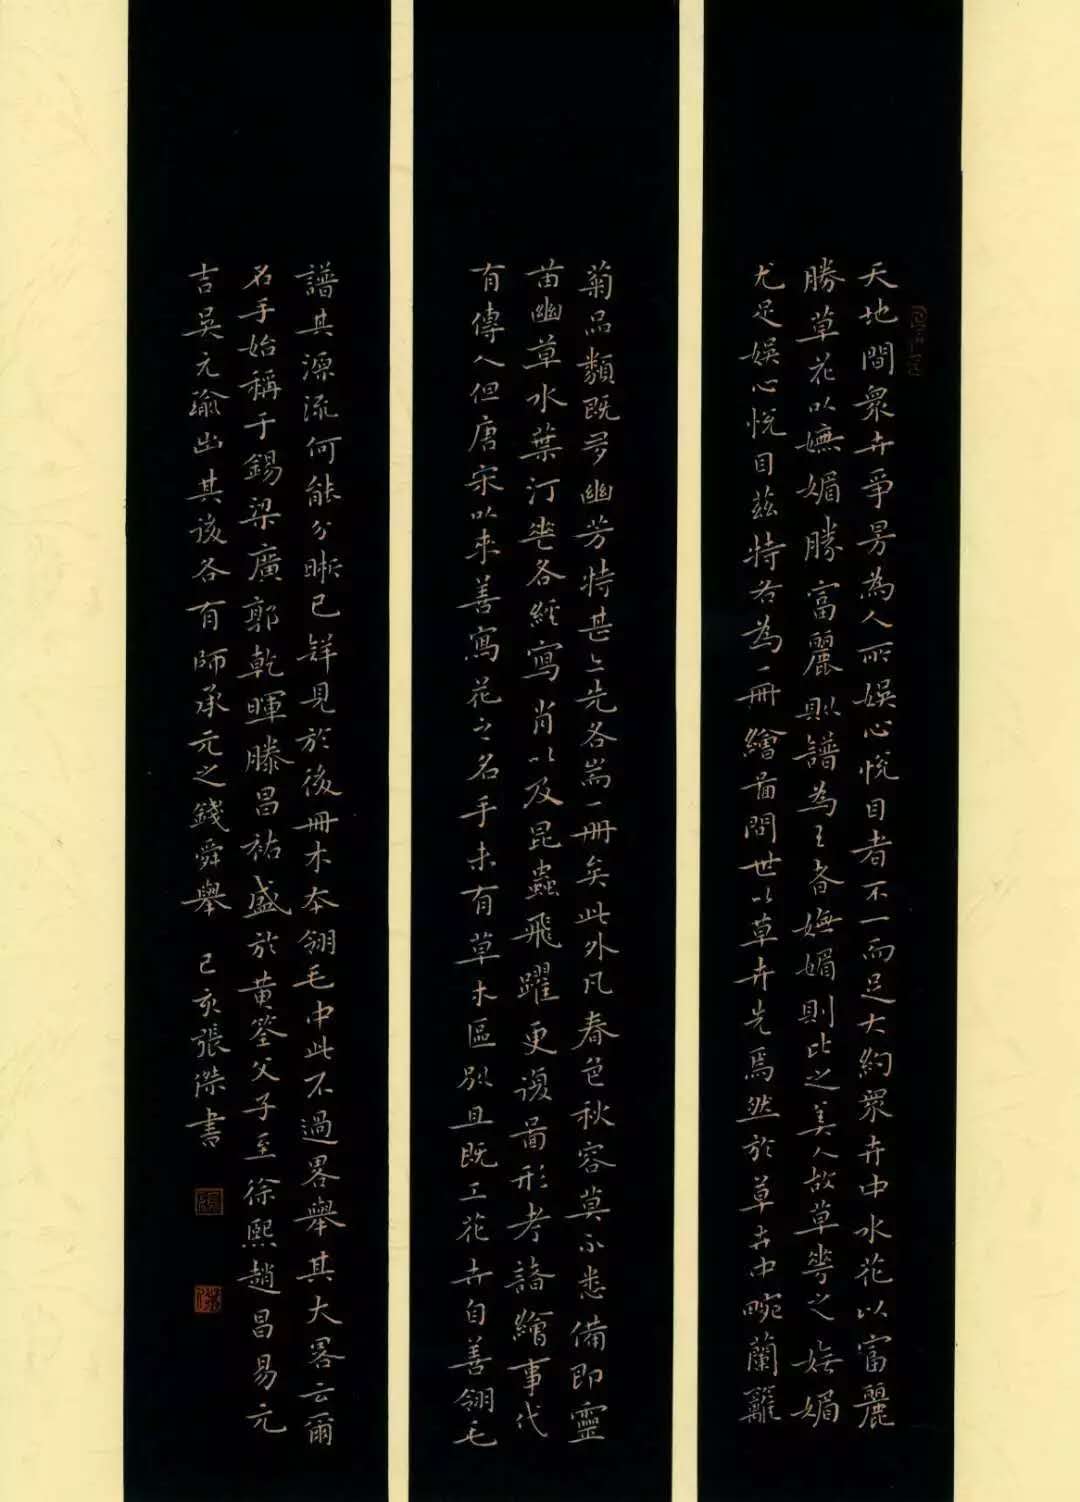 天地間眾卉爭易為人所娛心悅目者不一而足大約眾卉中水花以富麗
勝草花以嫵媚勝富麗則譜為王者嫵媚則比之美人故草花之嫵媚
尤足娛心悅目茲特各為一冊繪圖問世以草卉先焉然於草卉中畹蘭籬
菊品類既多幽芳特甚已先各耑一冊矣此外凡春色秋容莫不悉備即靈
苗幽草水葉汀花各經寫肖以及昆蟲飛躍更復圖形考諸繪事代
有傳人但唐宋以來善寫花之名手未有草木區別且既工花卉自善翎毛
譜其源流何能分晰已詳見於後冊木本翎毛中此不過畧舉其大畧云爾
名手始稱于錫梁廣郭乾暉滕昌祐盛於黃筌父子至徐熙趙昌易元
吉吳元瑜出其該各有師承元之錢舜舉 己亥張傑書